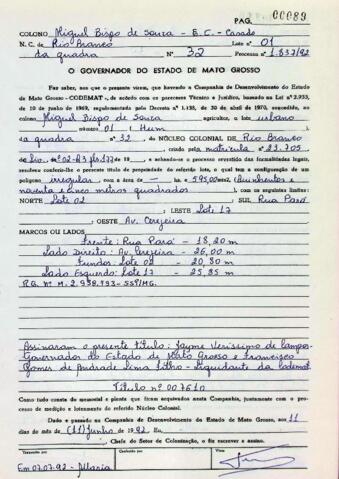 PAG. 00089
COLONO Miguel Bispo de Souza - E.C. - Casado
N. C. de Rio Branco Lote nº 01
da quadra Nº 32 Processo nº 1.837/92
O GOVERNADOR DO ESTADO DE MATO GROSSO
Faz saber, aos que o presente virem, que havendo a Companhia de Desenvolvimento do Estado
de Mato Grosso - CODEMAT -, de acordo com os preceitos Técnico e Jurídico, baseado na Lei nº 2.933,
de 10 de junho de 1969, regulamentada pelo Decreto nº 1.138, de 30 de abril de 1970, concedido, ao
colono Miguel Bispo de Souza agricultor, o lote urbano
número 01 (Hum
da quadra nº 32, do NÚCLEO COLONIAL DE Rio Branco
criado pela matrícula nº 23.705
de 19 , e achando-se o processo revestido das formalidades legais,
resolveu conferir-lhe o presente título de propriedade do referido lote, o qual tem a configuração de um
polígono irregular com a área de — há 595,00m2, (Quinhentos e
noventa e cinco metros quadrados), com os seguintes limites:
NORTE Lote 02 ; SUL Rua Pará
; LESTE Lote 17
; OESTE Av. Cerejeira
MARCOS OU LADOS
Frente: Rua Pará - 18,20 m
Lado Direito: Av. Cerejeira - 26,00 m
Fundos: Lote 02 - 20,80 m
Lado Esquerdo: Lote 17 - 25,85 m
R.G. Nº M-2.938.993-SSP/MG.
Assinaram o presente Título: Jayme Veríssimo de Campos-
Governador do Estado de Mato Grosso e Francisco
Gomes de Andrade Lima Filho - Liquidante da Codemat.
Título nº 007610
Como tudo consta do memorial e planta que ficam arquivados nesta Companhia, juntamente com o pro-
cesso de medição e loteamento do referido Núcleo Colonial.
Dado e passado na Companhia de Desenvolvimento do Estado de Mato Grosso, aos 11
dias do mês de (11) Junho de 1992
Chefe do Setor de Colonização, o fiz escrever e assino.
Transcrito por Conferido por Visto
Em 07.07.92 -